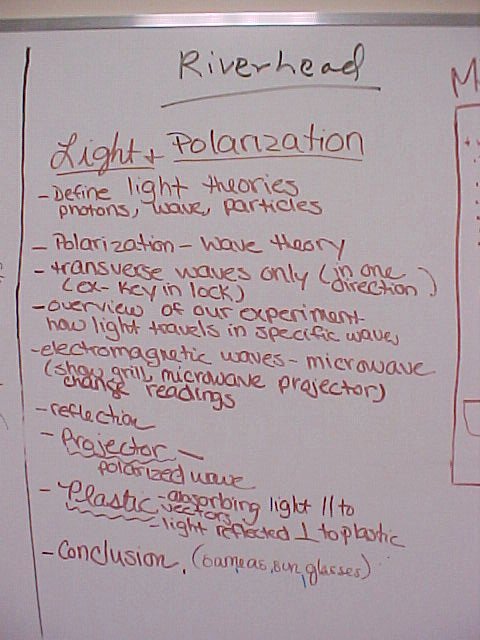 Riverhead
Light + Polarization
- Define light theories
photons, wave, particles
- Polarization - wave theory
- transverse waves only (in one direction)
(ex- key in lock)
- overview of our experiment-
how light travels in specific waves
- electromagnetic waves - microwave
(show grill, microwave projector)
change readings
- reflection
- Projector -
polarized wave
- Plastic - absorbing light // to
vectors
- light reflected ⊥ to plastic
- Conclusion. (cameras, sun glasses)
M